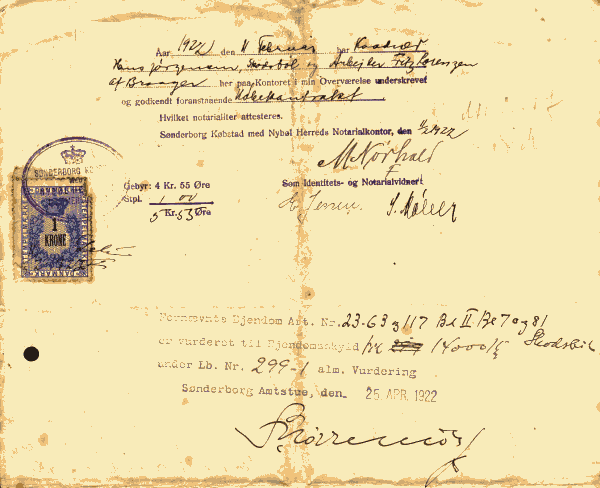 Aar 1922 den 11 Februar har Kaadner
Hans Jørgensen, Skodsbøl og Arbejder Fritz Lorenzen
af Broager her paa Kontoret i min Overværelse underskrevet
og godkendt foranstaaende
Hvilket notarialiter attesteres.
Sønderborg Købstad med Nybøl Herreds Notarialkontor, den 11/2 1922
M Nørhald
SØNDERBORG
Gebyr: 4 Kr. 55 Øre
Stpl. 1 00
5 Kr. 55 Øre
Som Identitets- og Notarialvidner:
Jensen. S. Møller
1
KRONE
DANMARK
Fornævnte Ejendom Art. Nr. 23-63 og 117 Bl II Be 7 og 81
er vurderet til Ejendomsskyld 14000 Kr Skodsbøl
under Lb. Nr. 299-1 alm. Vurdering
Sønderborg Amtstue, den 25 APR. 1922